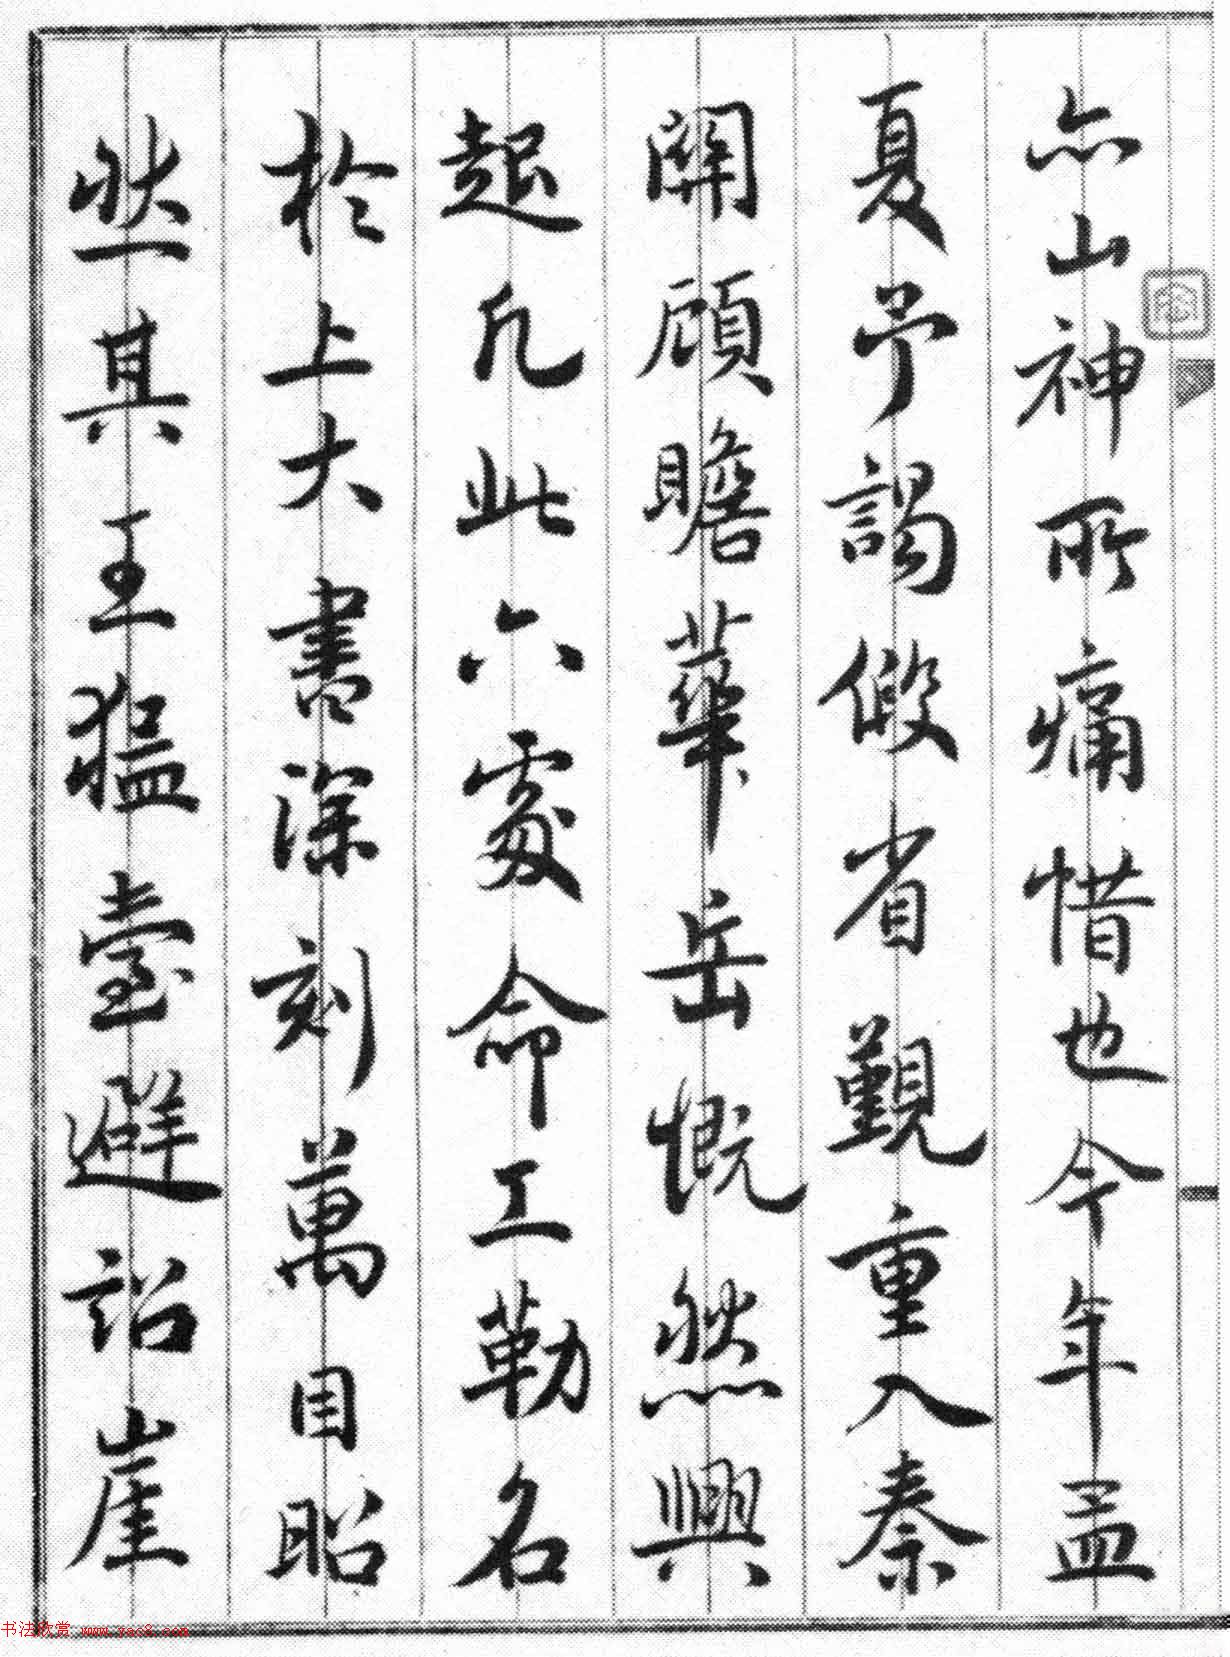 亦山神所痛惜也今年孟
夏予謁假省覲重入秦
關顧瞻華岳慨然興
起凡此六處命工勒名
於上大書深刻萬目昭
然其王猛臺避詔崖
书法欣赏 www.yac8.com